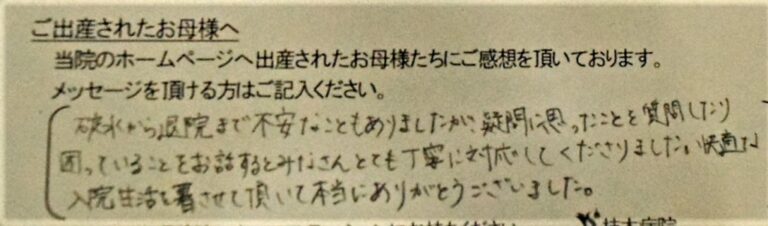 ご出産されたお母様へ
当院のホームページへ出産されたお母様たちにご感想を頂いております。
メッセージを頂ける方はご記入ください。
破水から退院まで不安なこともありましたが、疑問に思ったことを質問したり
困っていることをお話するとみなさんとても丁寧に対応してくださりました。快適な
入院生活を暮させて頂いて本当にありがとうございました。